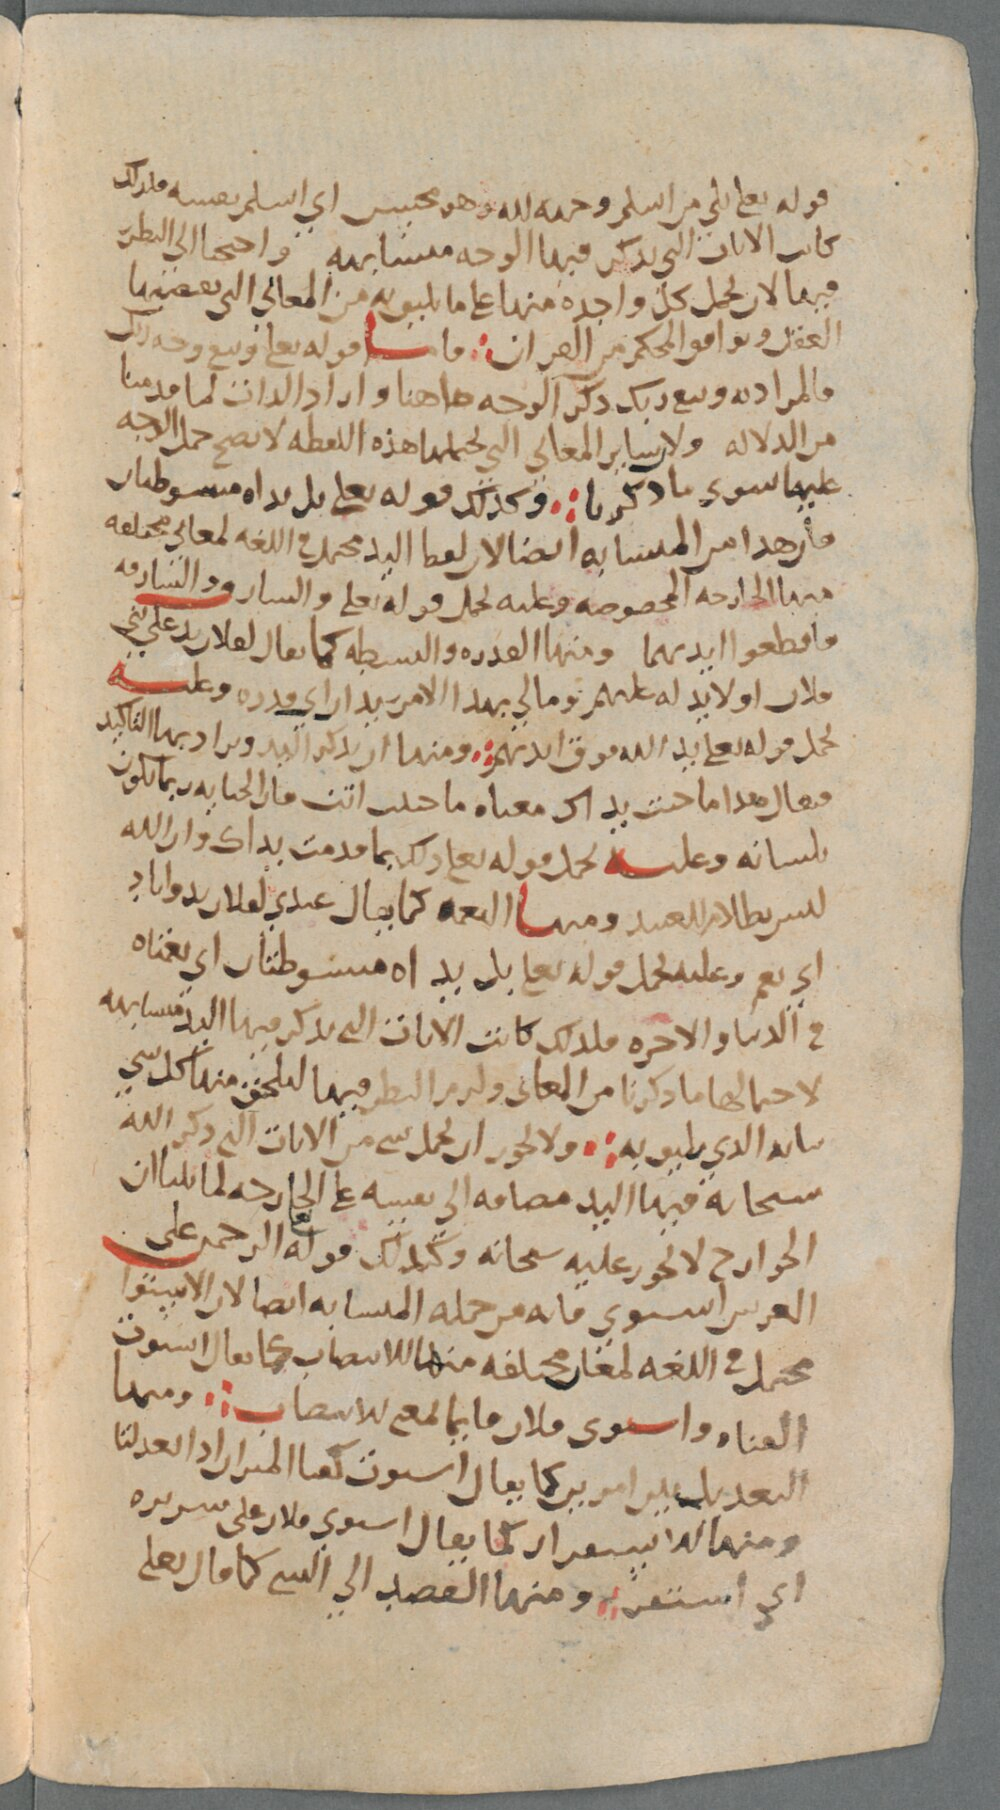 قوله تعلى بلى من اسلم وجهه لله وهو محسن اي اسلم نفسه فلذلك
كانت الايات التي يذكر فيها الوجه متشابهه واحتجنا الى النظر
فيها لان نحمل كل واحدة منها على ما يليق به من المعاني التي يقتضيها
العقل ويوافق المحكم من القران فاما قوله تعلى ويبقى وجه ربك
فالمراد به ويبقى ربك ذكر الوجه هاهنا واراد الذات لما قدمنا
من الدلاله ولان ساير المعاني التي تحتملها هذه اللفظه لا يصح حمل الوجه
عليها سوى ما ذكرنا وكذلك قوله تعلى بل يداه مبسوطتان
فان هذا من المتشابه ايضا لان لفظ اليد محتمل في اللغه لمعاني مختلفه
منها الجارحه المخصوصه وعليه يحمل قوله تعلى والسارق والسارقه
فاقطعوا ايديهما ومنها القدره والبسطه كما يقال لفلان يد على بني
فلان او لا يد له عليهم ومالي بهذا الامر يدان اي قدره وعليه
يحمل قوله تعلى يد الله فوق ايديهم ومنها ان يذكر اليد ويراد بها التاكيد
فيقال هذا ما جنت يداك معناه ما جنيت انت فان الجنايه ربما تكون
بلسانه وعليه يحمل قوله تعلى ذلك بما قدمت يداك وان الله
ليس بظلام للعبيد ومنها النعمه كما يقال عندي لفلان يد واياد
اي نعم وعليه يحمل قوله تعلى بل يداه مبسوطتان اي نعمتاه
في الدنيا والاخره فلذلك كانت الايات التي يذكر فيها اليد متشابهه
لاحتمالها ما ذكرنا من المعاني ولزم النظر فيها ليلحق منها كل شي
بابه الذي يليق به ولا يجوز ان يحمل شي من الايات التي ذكر الله
سبحانه فيها اليد مضافه الى نفسه على الجارحه لما بينا ان
الجوارح لا تجوز عليه سبحانه وكذلك قوله تع الرحمن على
العرش استوى فانه من جمله المتشابه ايضا لان الاستوا
محتمل في اللغه لمعان مختلفه منها الانتصاب كما يقال استوت
القناه واستوى فلان قايما بمعنى الانتصاب ومنها
التعديل بين امرين كما يقال استوت كفتا الميزان اذا اعتدلتا
ومنها الاستقرار كما يقال استوى فلان على سريره
اي استقر ومنها القصد الى الشي كما قال تعلى